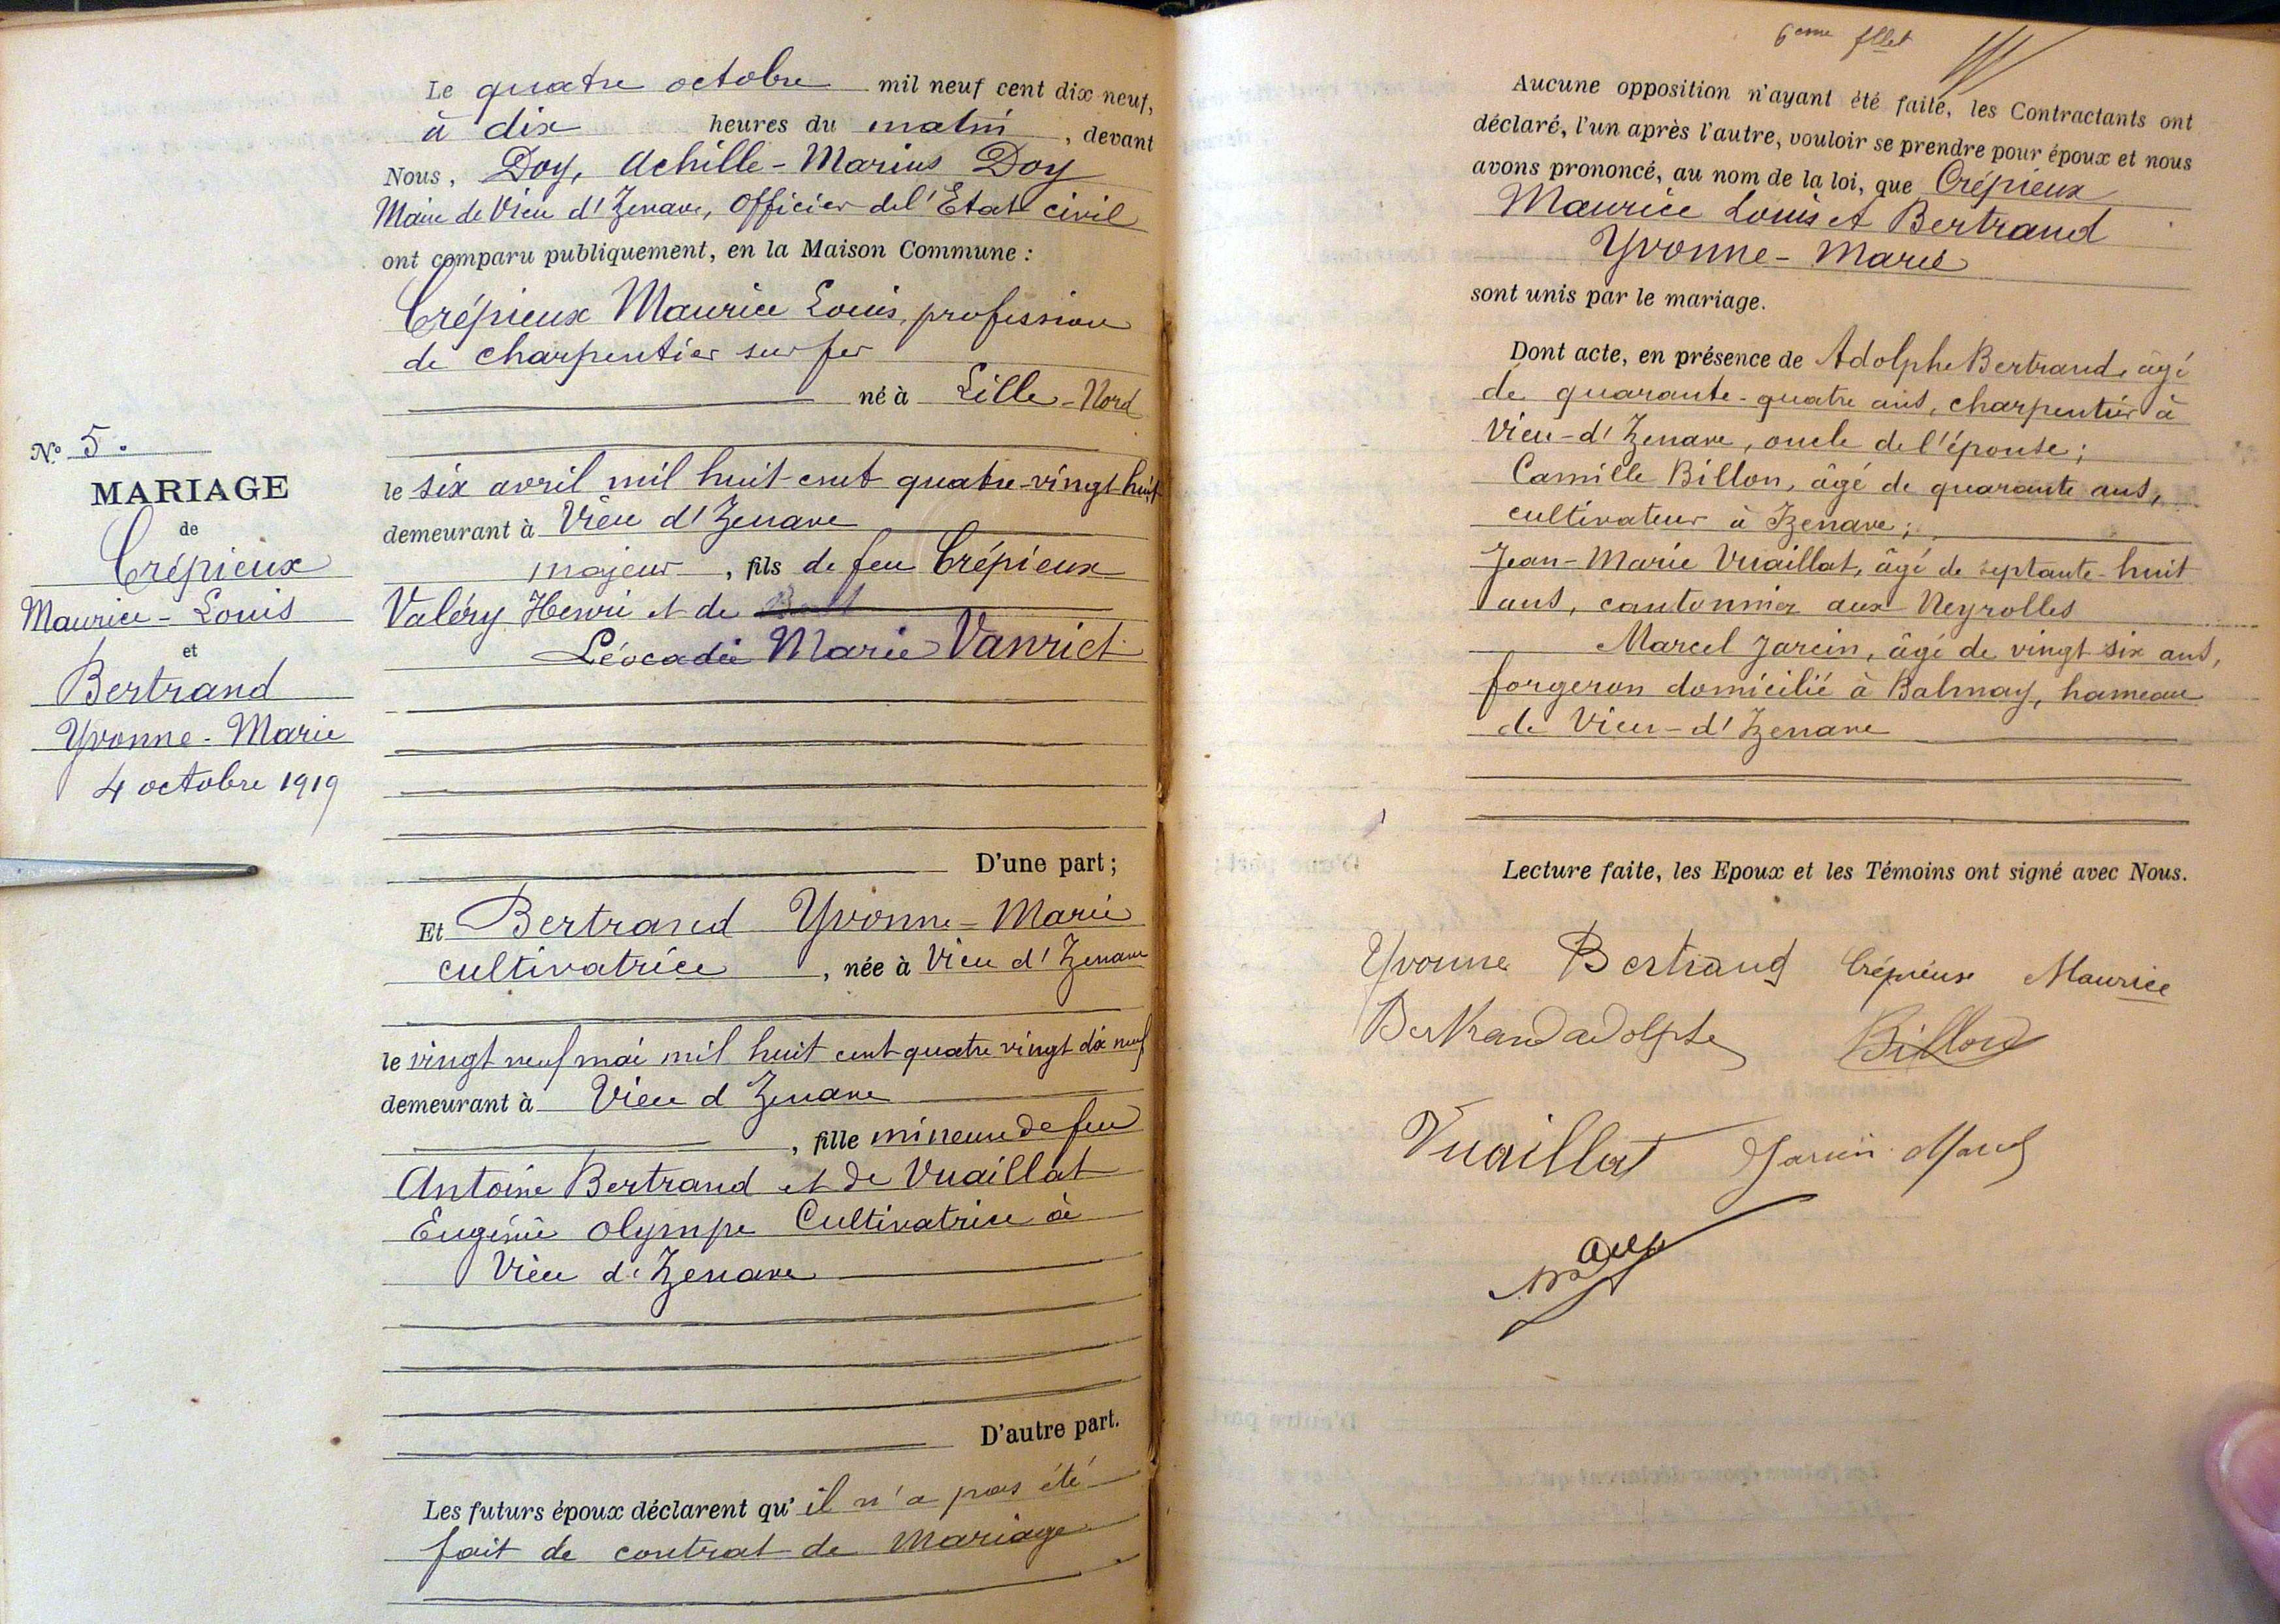 N.º 5.
MARIAGE
de
Crépieux
Maurice - Louis
et
Bertrand
Yvonne - Marie
4 octobre 1919
Le quatre octobre mil neuf cent dix neuf,
à dix heures du matin, devant
Nous, Doy, Achille - Marius Doy
Maire de Vieu d'Izenave, Officier de l'Etat civil
ont comparu publiquement, en la Maison Commune :
Crépieux Maurice Louis, profession
de charpentier sur fer
né à Lille - Nord
le six avril mil huit cent quatre-vingt huit
demeurant à Vieu d'Izenave
majeur, fils de feu Crépieux
Valéry Henri et de
Léocadie Marie Vanriet
D'une part ;
Et Bertrand Yvonne - Marie
cultivatrice, née à Vieu d'Izenave
le vingt neuf mai mil huit cent quatre vingt dix neuf
demeurant à Vieu d'Izenave
, fille mineure de feu
Antoine Bertrand et de Vuaillat
Eugénie Olympe Cultivatrice à
Vieu d'Izenave
D'autre part.
Les futurs époux déclarent qu'il n'a pas été
fait de contrat de Mariage
6eme fllet
Aucune opposition n'ayant été faite, les Contractants ont
déclaré, l'un après l'autre, vouloir se prendre pour époux et nous
avons prononcé, au nom de la loi, que Crépieux
Maurice Louis et Bertrand
Yvonne - Marie
sont unis par le mariage.
Dont acte, en présence de Adolphe Bertrand, âgé
de quarante-quatre ans, charpentier à
Vieu-d'Izenave, oncle de l'épouse ;
Camille Billon, âgé de quarante ans,
cultivateur à Izenave ;
Jean-Marie Vuaillat, âgé de septante-huit
ans, cantonnier aux Neyrolles
Marcel Jarcin, âgé de vingt six ans,
forgeron domicilié à Balmay, hameau
de Vieu-d'Izenave
Lecture faite, les Epoux et les Témoins ont signé avec Nous.
Yvonne Bertrand Crépieux Maurice
Bertrand adolphe Billon
Vuaillat Jarcin Marcel